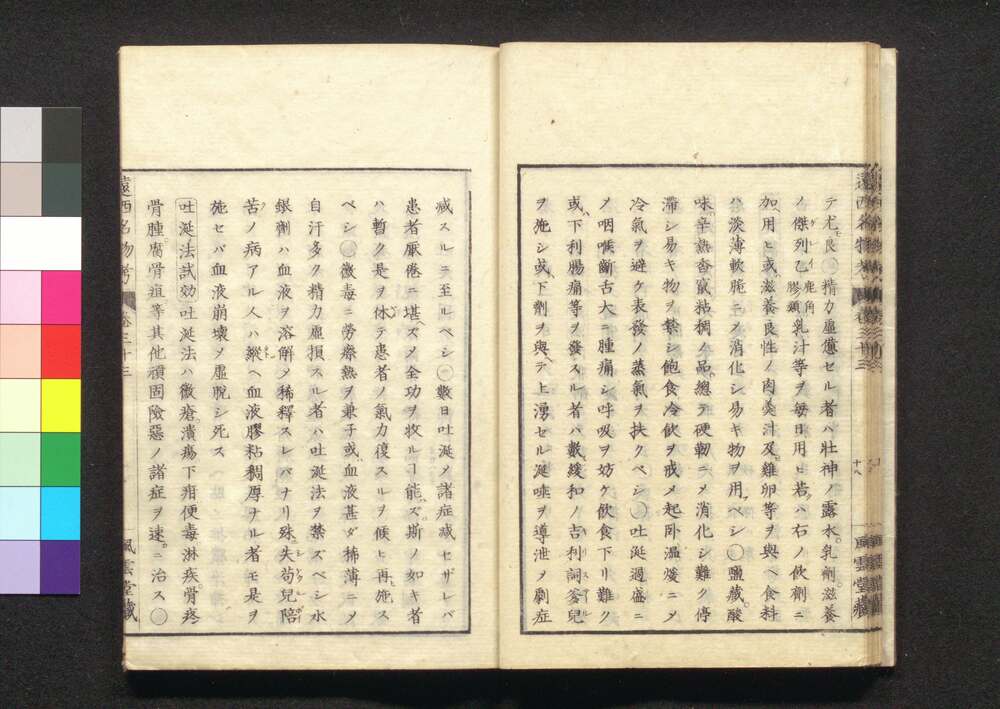 テ尤モ良シ○精力虛憊セル者ハ壯神ノ露水。乳劑。滋養
ノ傑列乙鹿角膠類乳汁等ヲ毎日用ヒ若クハ右ノ飲劑ニ
加ヘ用ヒ或ハ滋養良性ノ肉羹汁及ヒ雞卵等ヲ與ヘ食料
ハ淡薄軟脆ニメ消化シ易キ物ヲ用フベシ○鹽藏。酸
味辛熱香竄粘稠ノ品總テ硬韌ニメ消化シ難ク停
滯シ易キ物ヲ禁シ飽食冷飲ヲ戒メ起卧溫煖ニメ
冷氣ヲ避ケ表發ノ蒸氣ヲ扶クベシ○吐涎過盛ニ
メ咽喉齗舌大ニ腫痛シ呼吸ヲ妨ケ飲食下リ難ク
或ハ下利腸痛等ヲ發スル者ハ數緩和ノ吉利詞篤兒
ヲ施シ或ハ下劑ヲ與ヘテ上湧セル涎唾ヲ導泄メ劇症
遠西名物考
十八
風雲堂藏
減スルニ至ルベシ○數日吐涎メ諸症減セザレバ
患者厭倦ニ堪ヘズメ全功ヲ收ルヿ能ハズ。斯ノ如キ者
ハ暫ク是ヲ休テ患者ノ氣力復スルヲ候ヒ再ヒ施ス
ベシ○黴毒ニ勞瘵熱ヲ兼子或ハ血液甚ダ稀薄ニメ
自汗多ク精力虛損スル者ハ吐涎法ヲ禁ズベシ水
銀劑ハ血液ヲ溶解メ稀釋スレバナリ殊ニ失苟兒陪
苦ノ病アル人ハ縱ヘ血液膠粘稠厚ナル者モ是ヲ
施セバ血液崩壞メ虛脫シ死ス
吐涎法試効 吐涎法ハ黴瘡。潰瘍下疳便毒淋疾。骨疼
骨腫腐骨疽等其他頑固險惡ノ諸症ヲ速ニ治ス○
遠西名物考
卷三十三
風雲堂藏